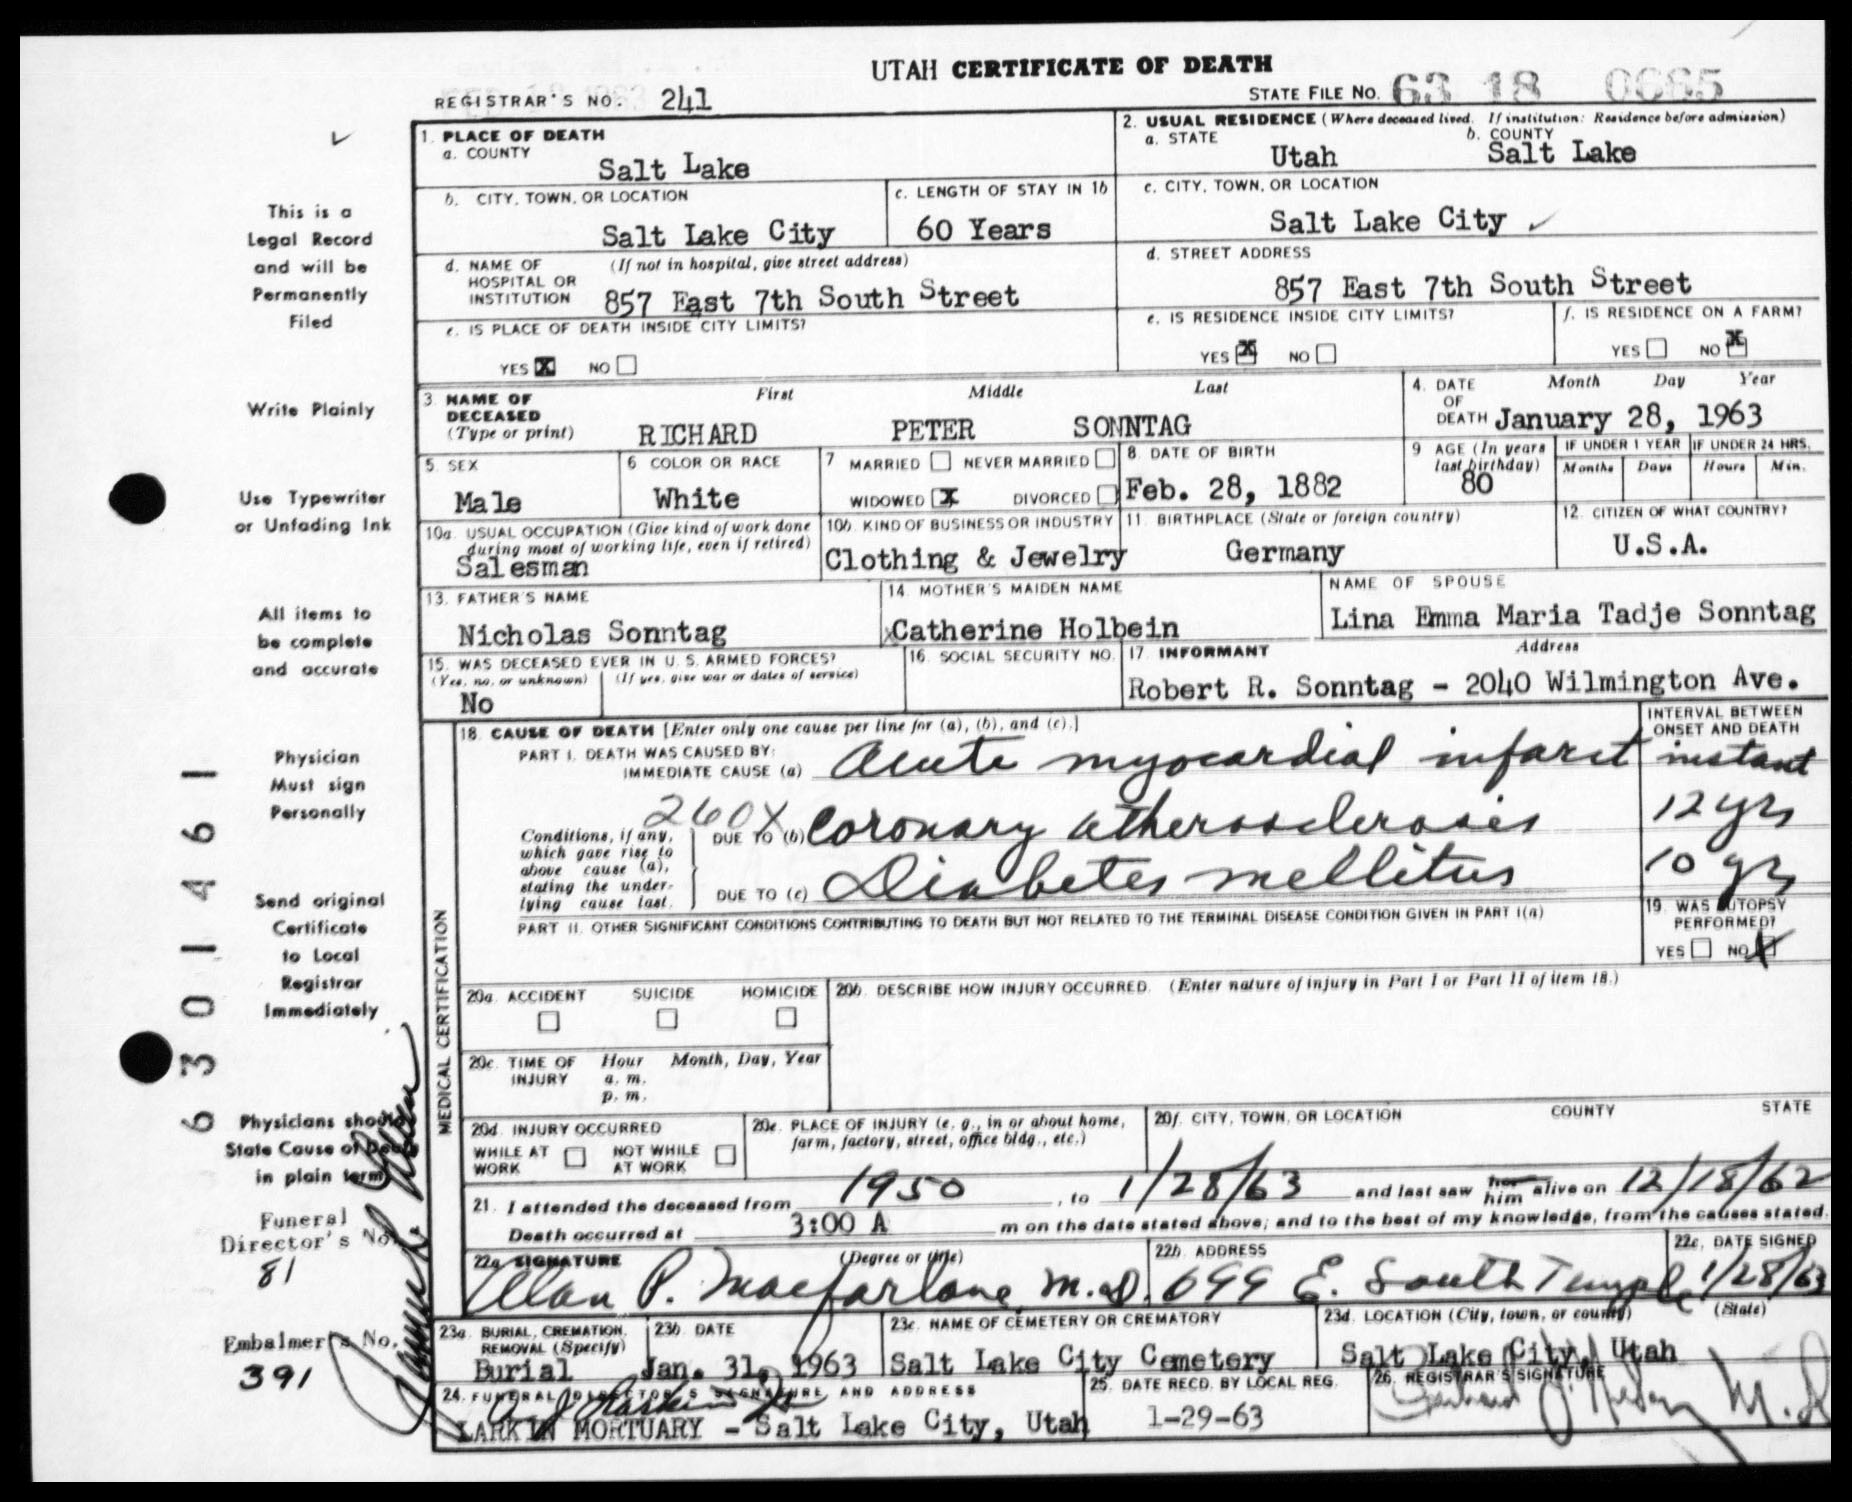 UTAH CERTIFICATE OF DEATH
REGISTRAR'S NO. 241
STATE FILE NO. 63 18 0665
1. PLACE OF DEATH
a. COUNTY
Salt Lake
2. USUAL RESIDENCE (Where deceased lived. If institution: Residence before admission)
a. STATE
Utah
b. COUNTY
Salt Lake
b. CITY, TOWN, OR LOCATION
Salt Lake City
c. LENGTH OF STAY IN 1b
60 Years
c. CITY, TOWN, OR LOCATION
Salt Lake City
d. NAME OF HOSPITAL OR INSTITUTION
(If not in hospital, give street address)
857 East 7th South Street
d. STREET ADDRESS
857 East 7th South Street
e. IS PLACE OF DEATH INSIDE CITY LIMITS?
YES X NO
e. IS RESIDENCE INSIDE CITY LIMITS?
YES X NO
f. IS RESIDENCE ON A FARM?
YES NO X
3. NAME OF DECEASED
(Type or print)
First Middle Last
RICHARD PETER SONNTAG
4. DATE OF DEATH
Month Day Year
January 28, 1963
5. SEX
Male
6 COLOR OR RACE
White
7 MARRIED NEVER MARRIED
WIDOWED X DIVORCED
8. DATE OF BIRTH
Feb. 28, 1882
9 AGE (In years last birthday)
80
IF UNDER 1 YEAR
Months Days
IF UNDER 24 HRS.
Hours Min.
10a. USUAL OCCUPATION (Give kind of work done during most of working life, even if retired)
Salesman
10b. KIND OF BUSINESS OR INDUSTRY
Clothing & Jewelry
11. BIRTHPLACE (State or foreign country)
Germany
12. CITIZEN OF WHAT COUNTRY?
U.S.A.
13. FATHER'S NAME
Nicholas Sonntag
14. MOTHER'S MAIDEN NAME
Catherine Holbein
NAME OF SPOUSE
Lina Emma Maria Tadje Sonntag
15. WAS DECEASED EVER IN U. S. ARMED FORCES?
(Yes, no, or unknown) (If yes, give war or dates of service)
No
16. SOCIAL SECURITY NO.
17. INFORMANT Address
Robert R. Sonntag - 2040 Wilmington Ave.
18. CAUSE OF DEATH [Enter only one cause per line for (a), (b), and (c).]
INTERVAL BETWEEN ONSET AND DEATH
PART I. DEATH WAS CAUSED BY:
IMMEDIATE CAUSE (a) Acute myocardial infarct instant
260X
Conditions, if any, which gave rise to above cause (a), stating the underlying cause last.
DUE TO (b) Coronary atherosclerosis 12 yrs
DUE TO (c) Diabetes mellitus 10 yrs
PART II. OTHER SIGNIFICANT CONDITIONS CONTRIBUTING TO DEATH BUT NOT RELATED TO THE TERMINAL DISEASE CONDITION GIVEN IN PART I(a)
19. WAS AUTOPSY PERFORMED?
YES NO X
MEDICAL CERTIFICATION
20a. ACCIDENT SUICIDE HOMICIDE
20b. DESCRIBE HOW INJURY OCCURRED. (Enter nature of injury in Part I or Part II of item 18.)
20c. TIME OF INJURY
Hour Month, Day, Year
a. m.
p. m.
20d. INJURY OCCURRED
WHILE AT WORK NOT WHILE AT WORK
20e. PLACE OF INJURY (e. g., in or about home, farm, factory, street, office bldg., etc.)
20f. CITY, TOWN, OR LOCATION COUNTY STATE
21. I attended the deceased from 1950, to 1/28/63 and last saw her him alive on 12/18/62
Death occurred at 3:00 A m on the date stated above; and to the best of my knowledge, from the causes stated.
22a. SIGNATURE (Degree or title)
Alan P. Macfarlane, M.D.
22b. ADDRESS
699 E. South Temple
22c. DATE SIGNED
1/28/63
23a. BURIAL, CREMATION, REMOVAL (Specify)
Burial
23b. DATE
Jan. 31, 1963
23c. NAME OF CEMETERY OR CREMATORY
Salt Lake City Cemetery
23d. LOCATION (City, town, or county) (State)
Salt Lake City, Utah
24. FUNERAL DIRECTOR'S SIGNATURE AND ADDRESS
LARKIN MORTUARY - Salt Lake City, Utah
25. DATE RECD. BY LOCAL REG.
1-29-63
26. REGISTRAR'S SIGNATURE
This is a
Legal Record
and will be
Permanently
Filed
Write Plainly
Use Typewriter
or Unfading Ink
All items to
be complete
and accurate
Physician
Must sign
Personally
Send original
Certificate
to Local
Registrar
Immediately
Physicians should
State Cause of Death
in plain term
Funeral
Director's No.
81
Embalmer's No.
391
6301461